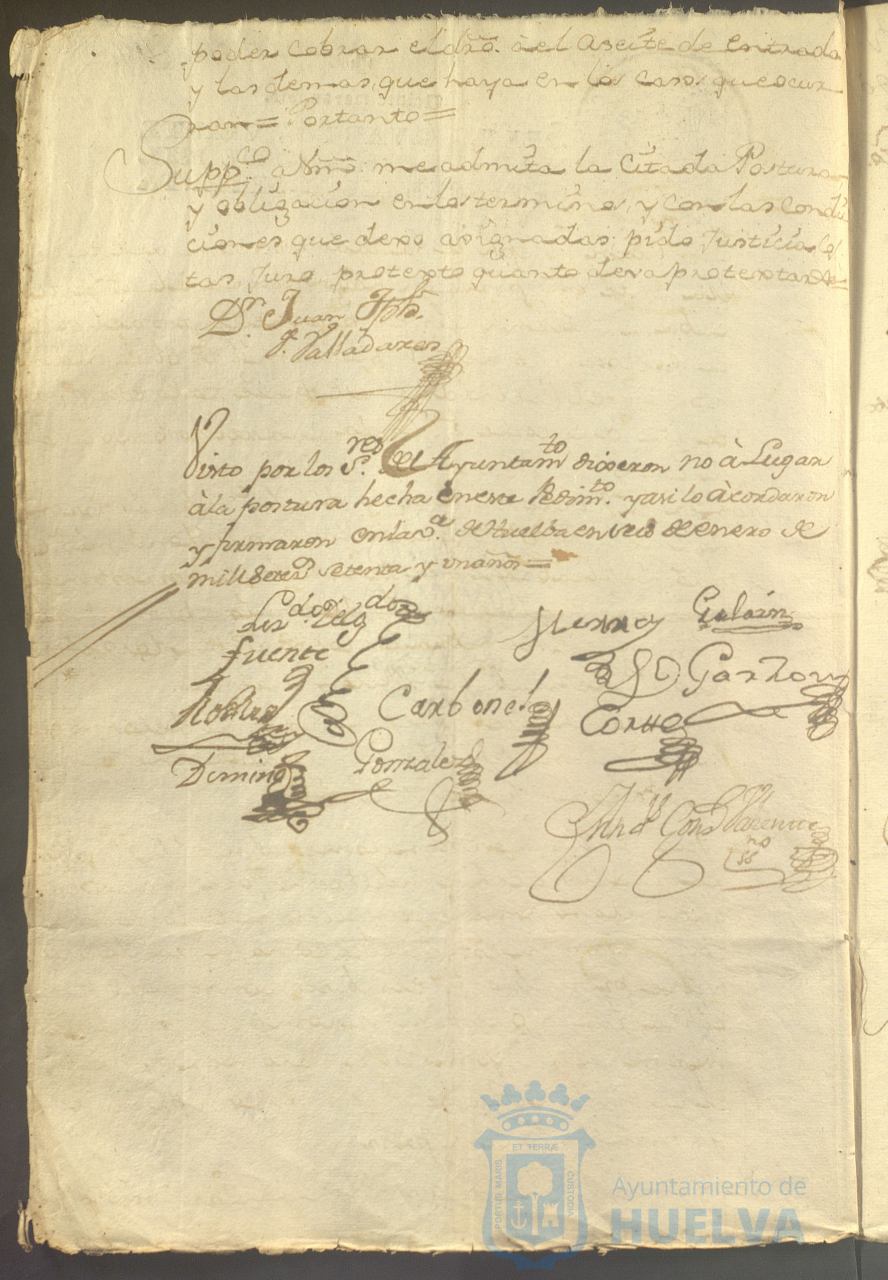 poder cobrar el dro. à el Aseite de entrada
y las demas que haya en los casos que ocur
ran = Portanto =
Suppco. a Vm. me admita la Citada Postura
y obligacion en los terminos y con las condi
ciones que dexo asignadas pido Justicia Cos
tas Juro protexto quanto deva protextar &
Dn. Juan Jph.
Valladares
Visto por los Sres. del Ayuntamto. dixeron no à Lugar
à la postura hecha en este Pedimto. y asi lo àcordaron
y firmaron en la Va. de Huelba en seis de enero de
mill setezs. setenta y un años =
Lizdo. Delgdo.
Fuente
Galain
Garzon
Robles
Carbonel
Cortte
Gonzalez
ET TERRÆ
PORTUS MARIS
CUSTODIA
Ayuntamiento de
HUELVA